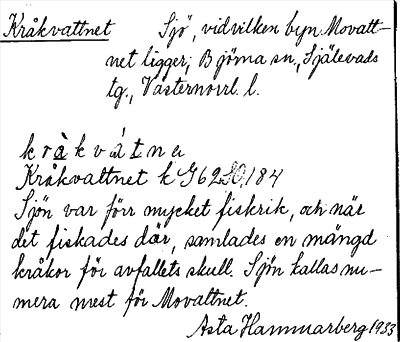 Kråkvattnet Sjö, vid vilken byn Movatt-
net ligger; Björna sn., Själevads
tg., Västernorrl. l.
kråkvátne
Kråkvattnet k G62SO,184
Sjön var förr mycket fiskrik, och när
det fiskades där, samlades en mängd
kråkor för avfallets skull. Sjön kallas nu-
mera mest för Movattnet.
Asta Hammarberg 1933